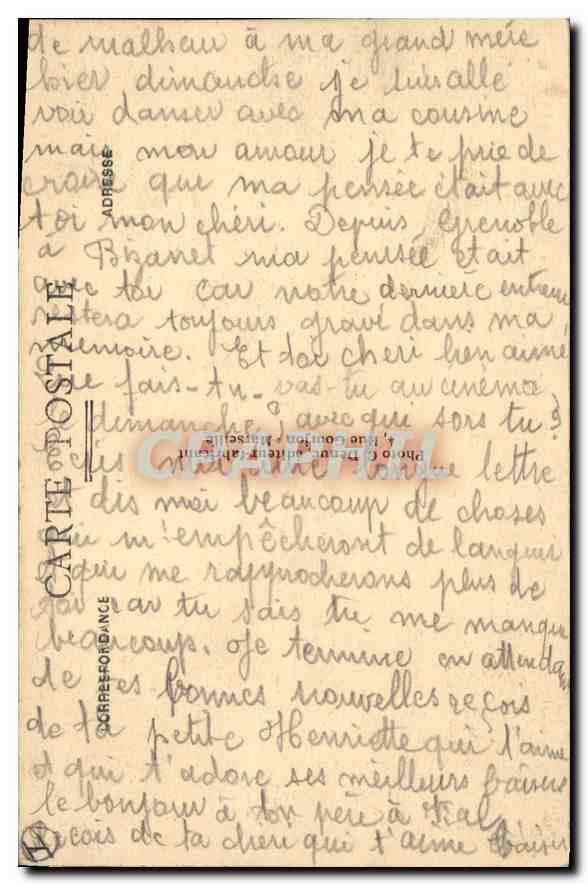 de malheur à ma grand mère
hier dimanche je suis allé
voir danser avec ma cousine
mais mon amour je te prie de
croire que ma pensée était avec
toi mon chéri. Depuis Grenoble
à Bizanet ma pensée était
avec toi car notre dernière
restera toujours gravé dans ma
mémoire. Et toi cheri bien aimé
que fais-tu vas-tu au cinéma
le dimanche, avec qui sors tu?
Ecris moi une longue lettre
et dis moi beaucoup de choses
qui m'empêcheront de languir
et qui me rapprocherons plus de
toi car tu sais tu me manque
beaucoup. Je termine en attendant
de tes bonnes nouvelles reçois
de ta petite Henriette qui t'aime
et qui t'adore ses meilleurs baisers
le bonjour à ton père à
reçois de ta cheri qui t'aime baiser
CARTE POSTALE
CORRESPONDANCE
ADRESSE
Photo C. éditeur-fabricant
4, Rue Gourjon - Marseille